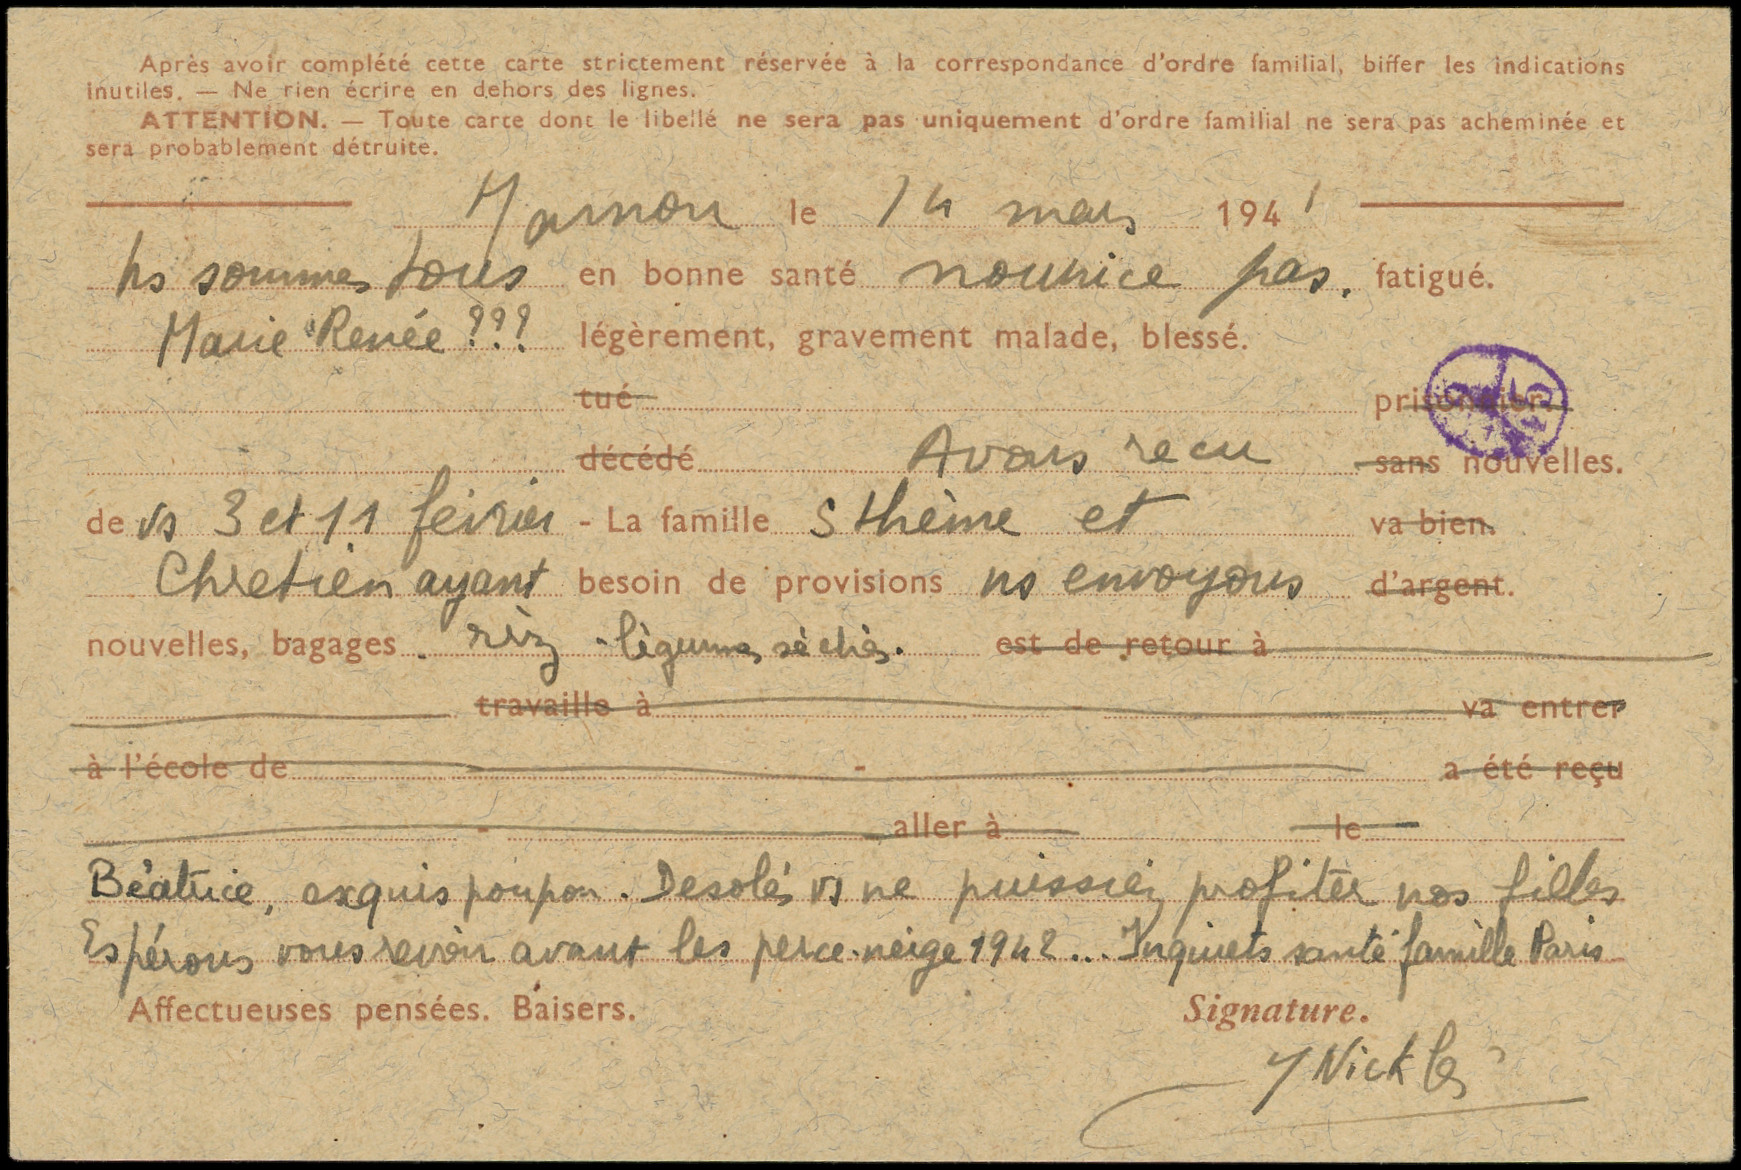 Après avoir complété cette carte strictement réservée à la correspondance d'ordre familial, biffer les indications
inutiles. — Ne rien écrire en dehors des lignes.
ATTENTION. — Toute carte dont le libellé ne sera pas uniquement d'ordre familial ne sera pas acheminée et
sera probablement détruite.
Marnon le 14 mars 1941
ns sommes tous en bonne santé nourrice pas. fatigué.
Marie Renée ??? légèrement, gravement malade, blessé.
tué prisonnier
décédé Avons recu sans nouvelles.
de vs 3 et 11 février - La famille Sthème et va bien.
Chretien ayant besoin de provisions ns envoyons d'argent.
nouvelles, bagages . riz - légumes séchés. est de retour à
travaille à va entrer
à l'école de - a été reçu
- aller à le
Béatrice, exquis poupon. Desolés vs ne puissiez profiter nos filles
Espérons vous revoir avant les perce-neige 1942 ... Inquiets santé famille Paris
Affectueuses pensées. Baisers. Signature.
Y Nicklès